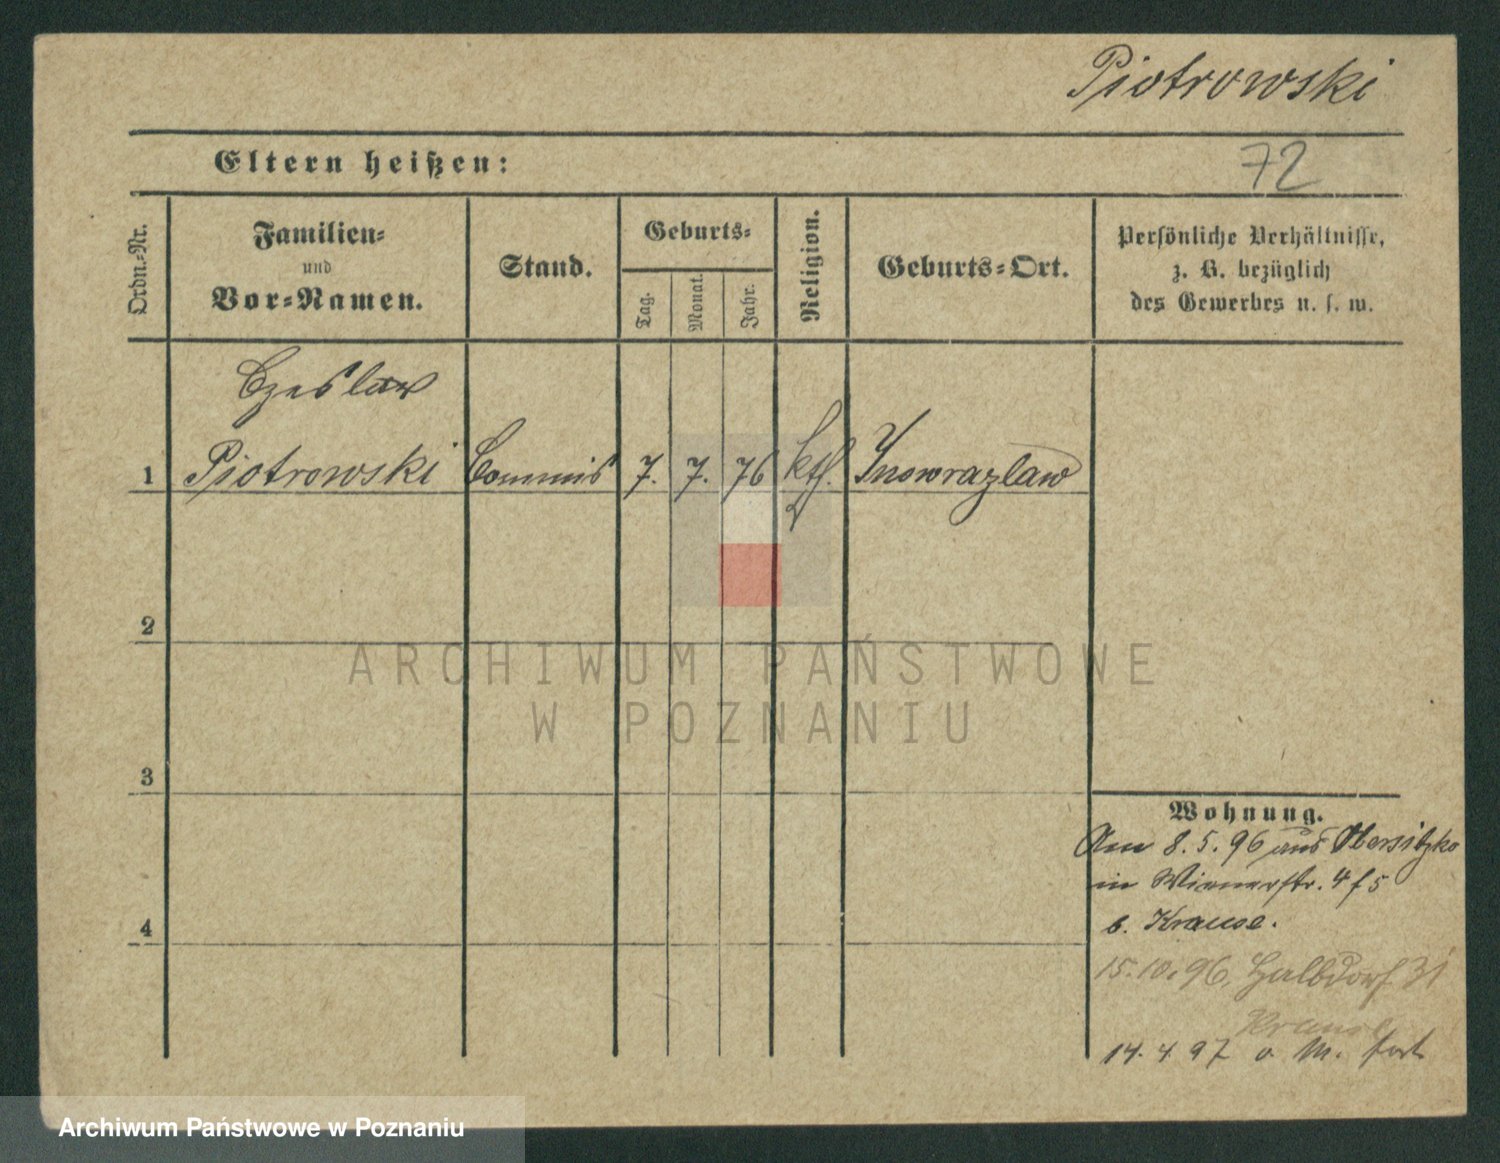 Piotrowski
Eltern heißen:
72
Ordn.-Nr.
Familien-
und
Vor-Namen.
Stand.
Geburts-
Tag.
Monat.
Jahr.
Religion.
Geburts-Ort.
Persönliche Verhältnisse,
z. B. bezüglich
des Gewerbes u. s. w.
Czeslaw
1 Piotrowski Commis 7. 7. 76 kth. Inowrazlaw
2
3
4
ARCHIWUM PAŃSTWOWE
W POZNANIU
Wohnung.
Am 8.5.96 aus Obersitzko
in Wienerstr. 4 f 5
b. Krause.
15.10.96, Halbdorf 31
Krause
14.4 97 o M. fort
Archiwum Państwowe w Poznaniu